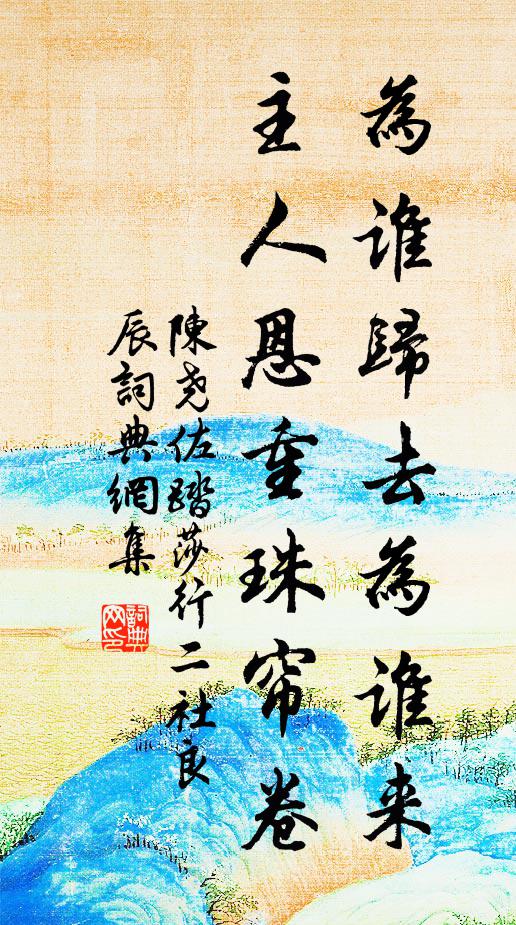 為誰歸去為谁来
主人恩重珠帘卷
陳尧佐踏莎行二社良
辰詞典網集
詞典
网印